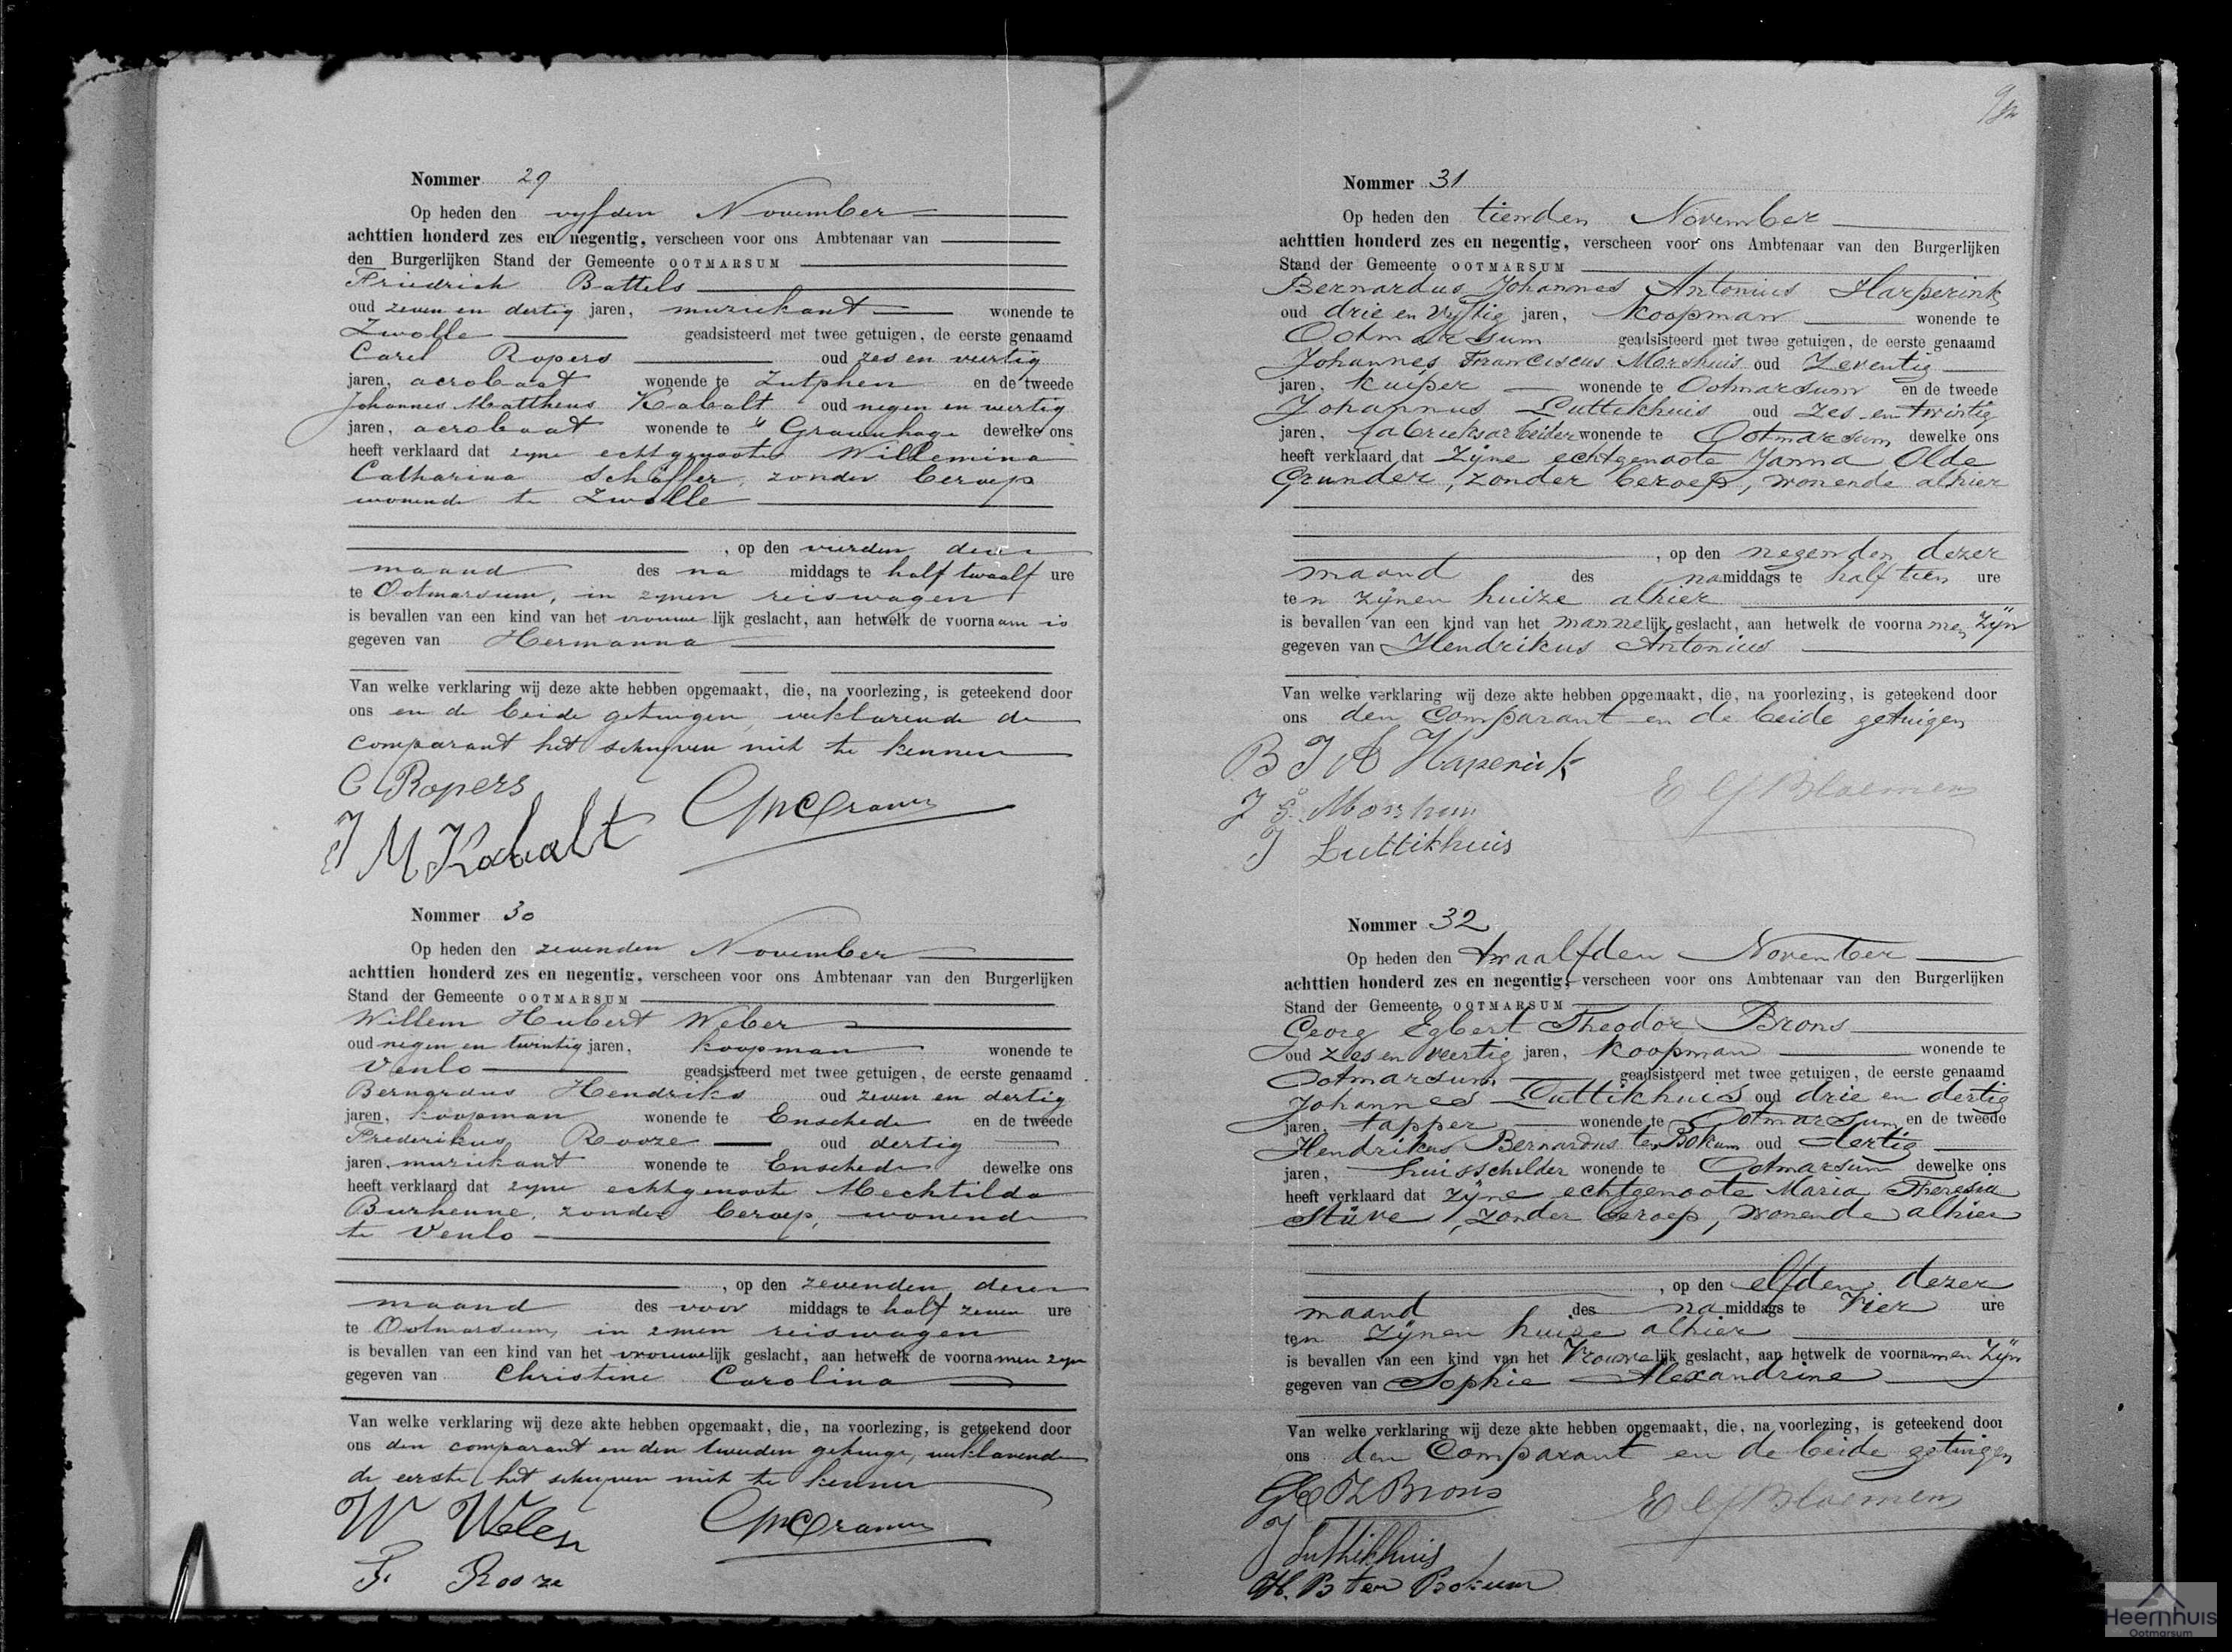 Nommer 29
Op heden den vyfden November
achttien honderd zes en negentig, verscheen voor ons Ambtenaar van
den Burgerlijken Stand der Gemeente OOTMARSUM
Friedrich Battels
oud zeven en dertig jaren, muziekant wonende te
Zwolle geadsisteerd met twee getuigen, de eerste genaamd
Carel Ropers oud zes en veertig
jaren, acrobaat wonende te Zutphen en de tweede
Johannes Mattheus Kabalt oud negen en veertig
jaren, acrobaat wonende te 's Gravenhage dewelke ons
heeft verklaard dat zyne echtgenoote Willemina
Catharina Schäffer, zonder beroep
wonende te Zwolle
, op den vierden dezer
maand des na middags te half twaalf ure
te Ootmarsum, in zynen reiswagen
is bevallen van een kind van het vrouwelijk geslacht, aan hetwelk de voornaam is
gegeven van Hermanna
Van welke verklaring wij deze akte hebben opgemaakt, die, na voorlezing, is geteekend door
ons en de beide getuigen, verklarende de
comparant het schryven niet te kennen
C Ropers
J M Kabalt
Nommer 30
Op heden den zevenden November
achttien honderd zes en negentig, verscheen voor ons Ambtenaar van den Burgerlijken
Stand der Gemeente OOTMARSUM
Willem Hubert Weber
oud negen en twintig jaren, koopman wonende te
Venlo geadsisteerd met twee getuigen, de eerste genaamd
Bernardus Hendriks oud zeven en dertig
jaren, koopman wonende te Enschede en de tweede
Frederikus Rooze oud dertig
jaren, muziekant wonende te Enschede dewelke ons
heeft verklaard dat zyne echtgenoote Mechtilda
Burhenne, zonder beroep, wonende
te Venlo
, op den zevenden dezer
maand des voor middags te half zeven ure
te Ootmarsum, in zynen reiswagen
is bevallen van een kind van het vrouwelijk geslacht, aan hetwelk de voornamen zyn
gegeven van Christine Carolina
Van welke verklaring wij deze akte hebben opgemaakt, die, na voorlezing, is geteekend door
ons den comparant en den tweeden getuige, verklarende
de eerste het schryven niet te kennen
W Weber
F. Rooze
Nommer 31
Op heden den tienden November
achttien honderd zes en negentig, verscheen voor ons Ambtenaar van den Burgerlijken
Stand der Gemeente OOTMARSUM
Bernardus Johannes Antonius Harperink
oud drie en vyftig jaren, Koopman wonende te
Ootmarsum geadsisteerd met twee getuigen, de eerste genaamd
Johannes Franciscus Morshuis oud Zeventig
jaren, kuiper wonende te Ootmarsum en de tweede
Johannus Luttikhuis oud Zes en twintig
jaren, fabrieksarbeider wonende te Ootmarsum dewelke ons
heeft verklaard dat Zijne echtgenoote Janna Olde
Grunder, zonder beroep, wonende alhier
, op den negenden dezer
maand des namiddags te half tien ure
ten zijnen huize alhier
is bevallen van een kind van het mannelijk geslacht, aan hetwelk de voornamen Zijn
gegeven van Hendrikus Antonius
Van welke verklaring wij deze akte hebben opgemaakt, die, na voorlezing, is geteekend door
ons den Comparant en de beide getuigen
B J A Haperink
J Luttikhuis
Nommer 32
Op heden den twaalfden November
achttien honderd zes en negentig, verscheen voor ons Ambtenaar van den Burgerlijken
Stand der Gemeente OOTMARSUM
Georg Egbert Theodor Brons
oud zes en veertig jaren, Koopman wonende te
Ootmarsum geadsisteerd met twee getuigen, de eerste genaamd
Johannes Luttikhuis oud drie en dertig
jaren, tapper wonende te Ootmarsum en de tweede
Hendrikus Bernardus ten Bokum oud dertig
jaren, huisschilder wonende te Ootmarsum dewelke ons
heeft verklaard dat Zijne echtgenoote Maria Theresia
Stüve, zonder beroep, wonende alhier
, op den elfden dezer
maand des na middags te Vier ure
ten Zijnen huize alhier
is bevallen van een kind van het Vrouwelijk geslacht, aan hetwelk de voornamen Zijn
gegeven van Sophie Alexandrine
Van welke verklaring wij deze akte hebben opgemaakt, die, na voorlezing, is geteekend door
ons den Comparant en de beide getuigen
G E T Brons
J Luttikhuis
H. B ten Bokum
Heernhuis
Ootmarsum